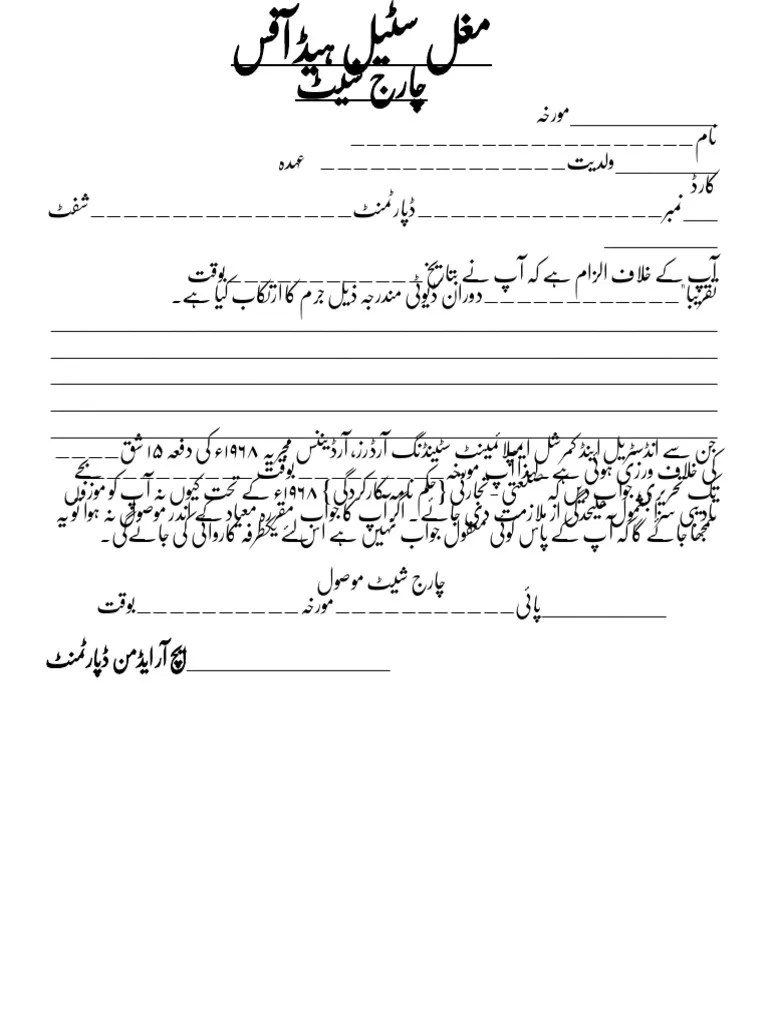 مغل سٹیل ہیڈ آفس
چارج شیٹ
مورخہ____________
نام_____________________
ولدیت_______________ عہدہ_________
کارڈ
نمبر_______________ڈپارٹمنٹ________________شفٹ___
__________
آپ کے خلاف الزام ہے کہ آپ نے بتاریخ____________بوقت
تقریبا"____________دوران ڈیوٹی مندرجہ ذیل جرم کا ارتکاب کیا ہے۔
جن سے انڈسٹریل اینڈ کمرشل ایمپلائمینٹ سٹینڈنگ آرڈرز، آرڈیننس مجریہ ۱۹۶۸ء کی دفعہ ۱۵ شق____
کی خلاف ورزی ہوتی ہے۔ لہذا آپ مورخہ_________ بوقت_________ بجے
تک تحریری جواب دیں کہ صنعتی-تجارتی {حکم نامہ سکارکردگی} ۱۹۶۸ء کے تحت کیوں نہ آپ کو موزوں
تادیبی سزا بشمول علیحدگی از ملازمت دی جائے۔ اگر آپ کا جواب مقررہ معیاد کے اندر موصول نہ ہوا تو یہ
سمجھا جائے گا کہ آپ کے پاس کوئی معقول جواب نہیں ہے اس لئے یکطرفہ کاروائی کی جائے گی۔
چارج شیٹ موصول
پائی___________مورخہ__________بوقت___________
ایچ آر ایڈمن ڈپارٹمنٹ________________